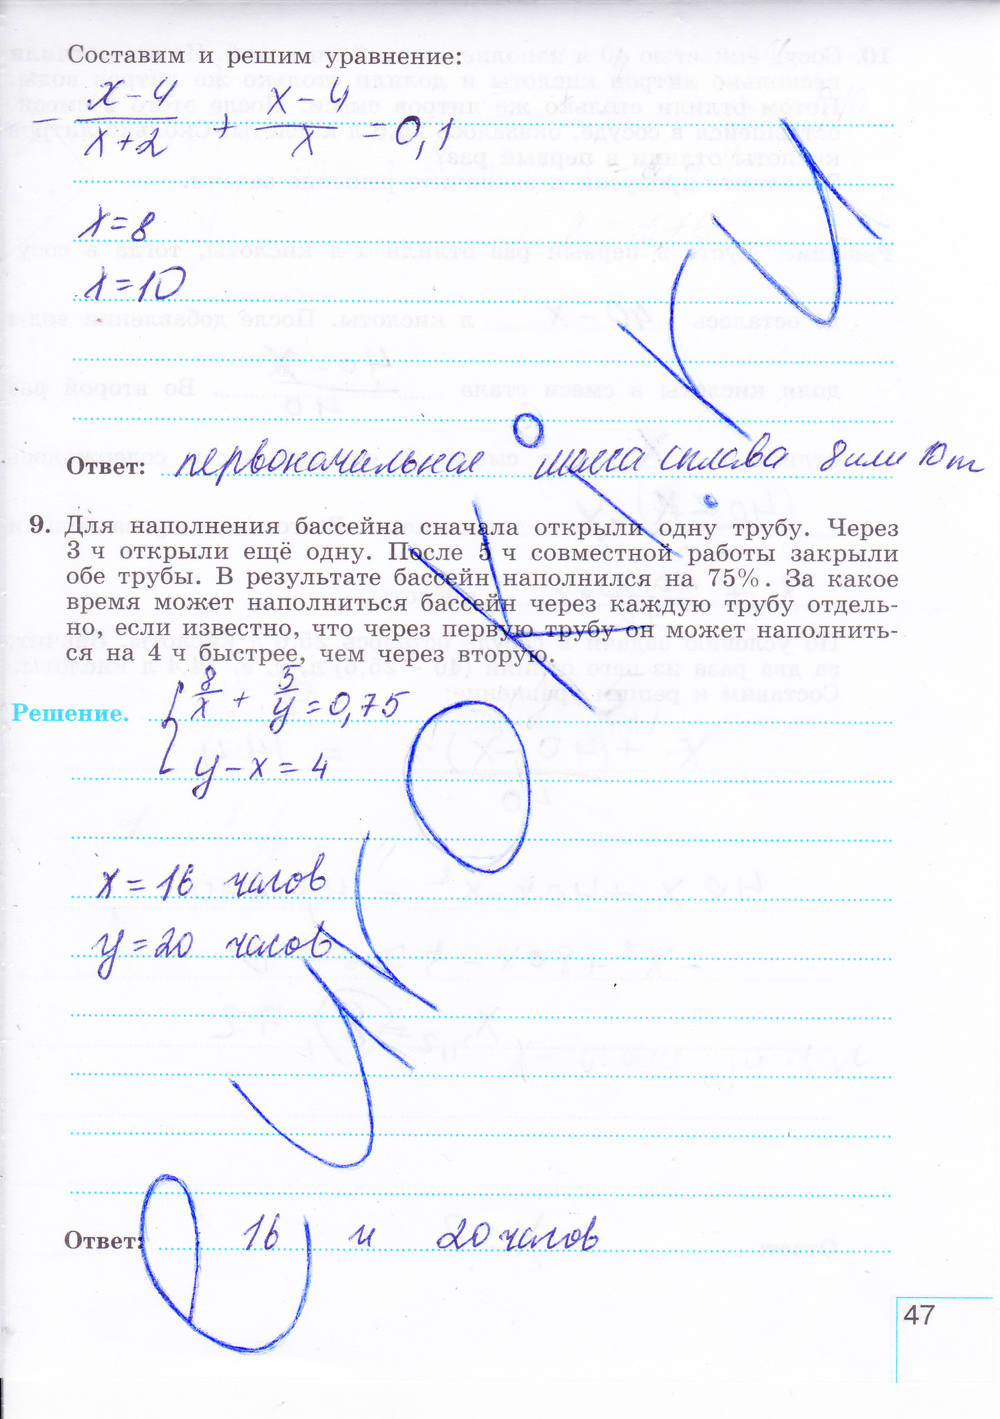 Составим и решим уравнение:
− x−4/x+2 + x−4/x = 0,1
x=8
x=10
Ответ: первоначальная масса сплава 8 или 10 т
9. Для наполнения бассейна сначала открыли одну трубу. Через
3 ч открыли ещё одну. После 5 ч совместной работы закрыли
обе трубы. В результате бассейн наполнился на 75%. За какое
время может наполниться бассейн через каждую трубу отдель-
но, если известно, что через первую трубу он может наполнить-
ся на 4 ч быстрее, чем через вторую.
Решение. { 8/x + 5/y = 0,75
y−x=4
x=16 часов
y=20 часов
Ответ: 16 и 20 часов
47